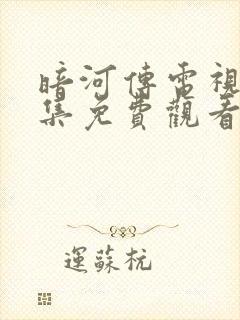 暗河傳電視
集免費觀看
運蘇杭